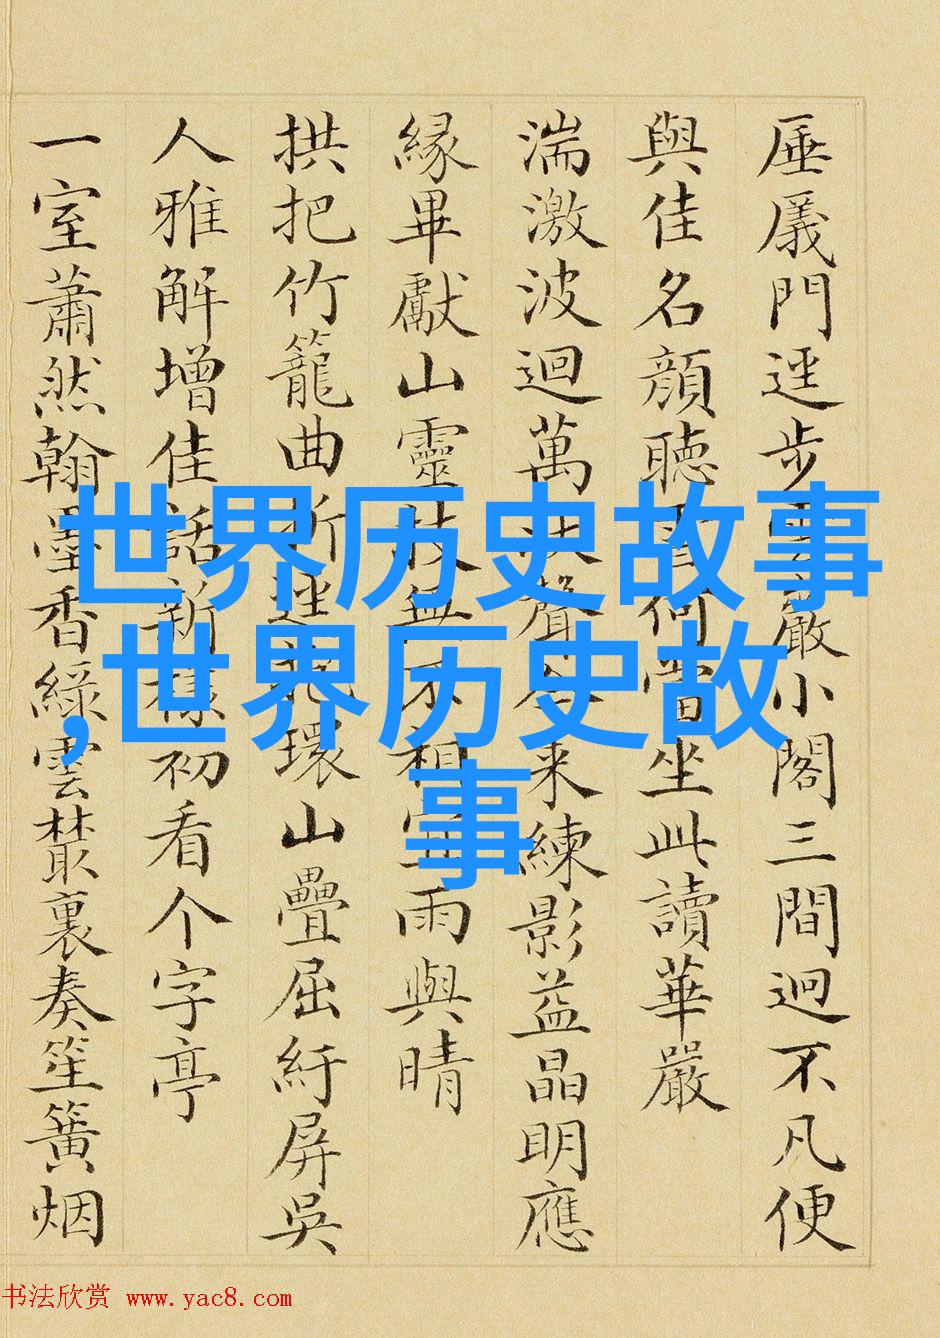 厜㕒門逕步雲巖小閣三間迥不凡便
與佳名顔聽雪何當坐此讀華嚴
湍激波迴萬聲來練影益晶明應
緣畢獻山靈技無不相宜雨與晴
拱把竹籠曲折花環山疊屈紆屏吳
人雅解增佳話新樣初看个字亭
一室蕭然翰墨香綠雲藂裏奏笙簧烟
世界历史故事
,世界历史故
事
书法欣赏 www.yac8.com